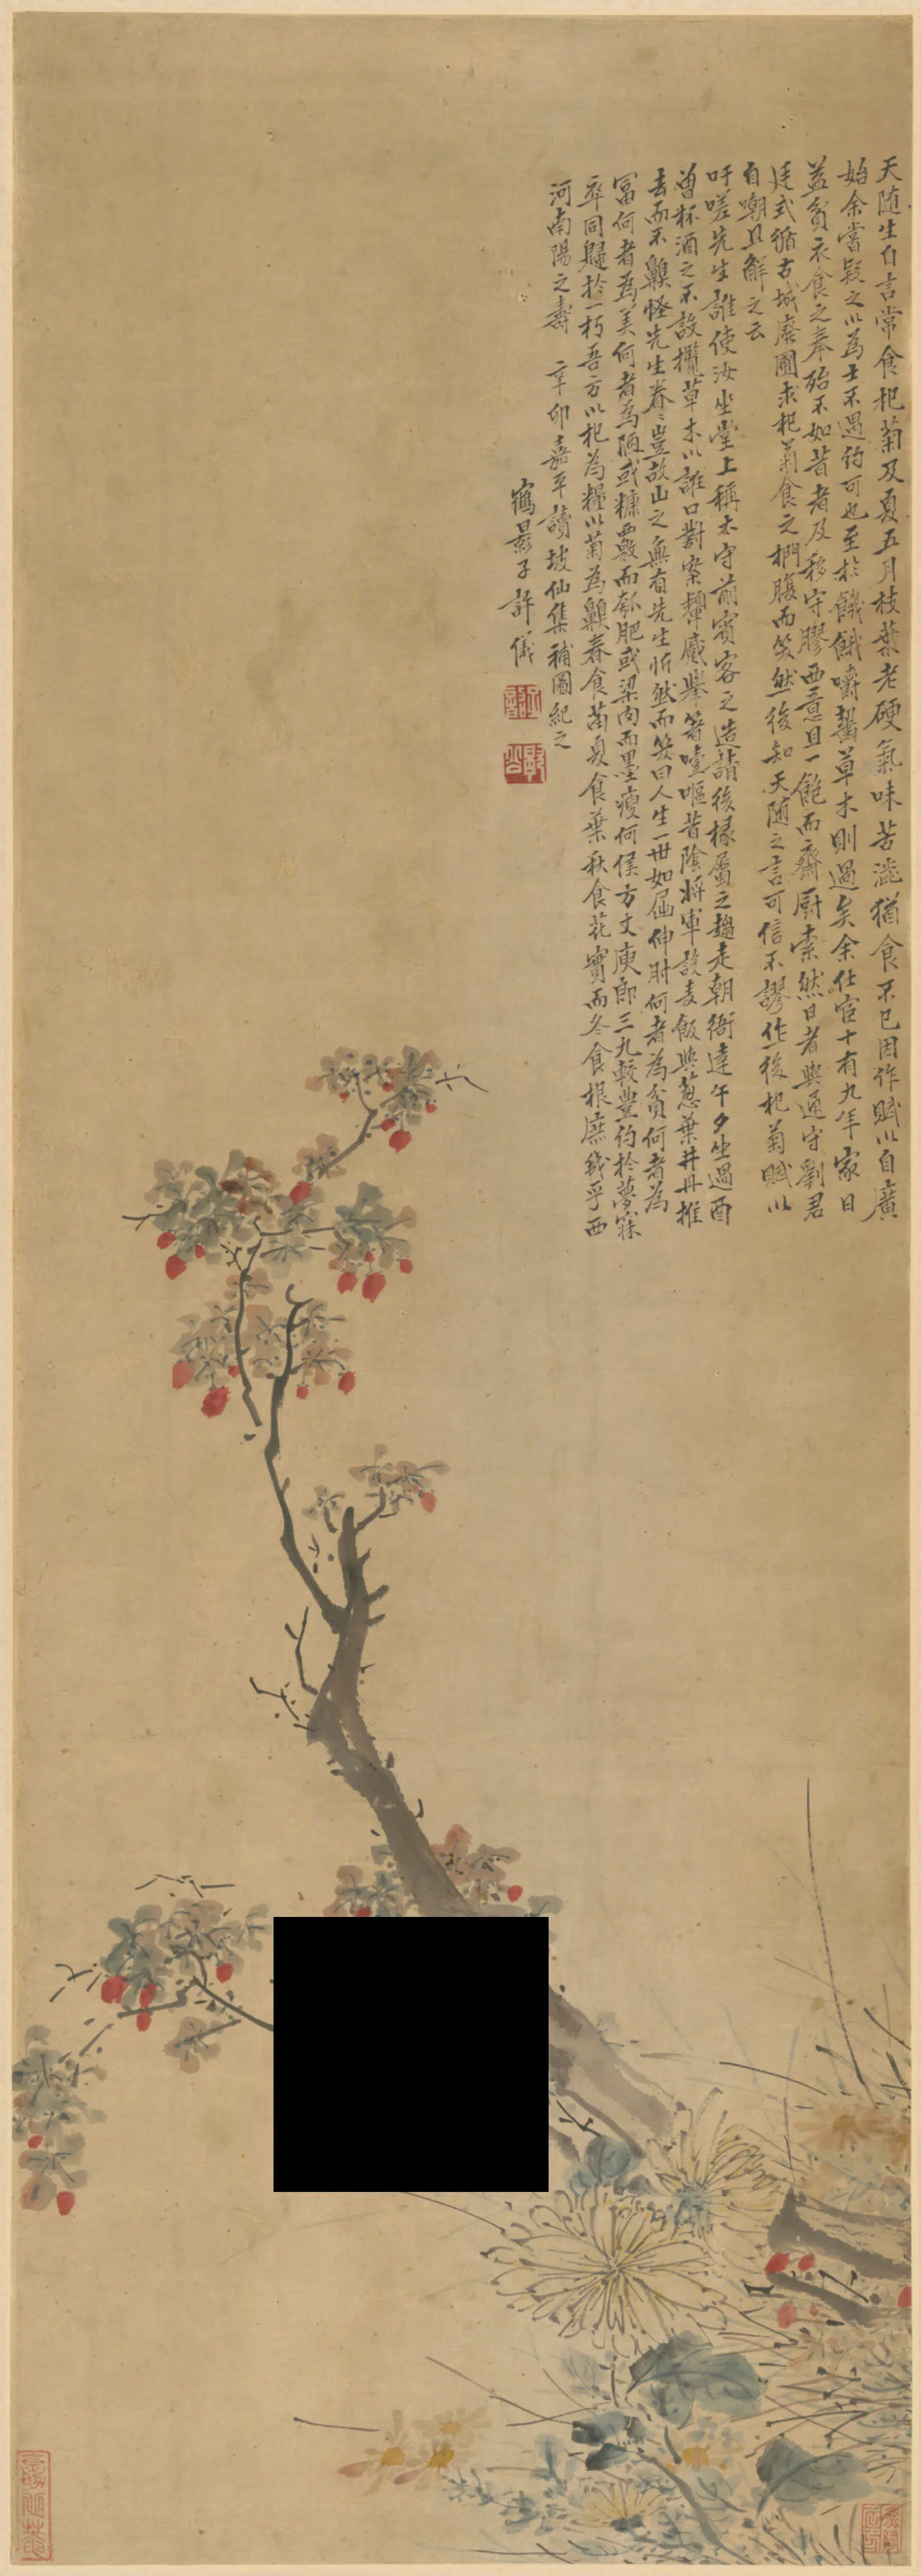 天随生自言常食杞菊及夏五月枝葉老硬氣味苦澁猶食不已因作賦以自廣
始余嘗疑之以為士不遇約可也至於飢餓嚼齧草木則過矣余仕宦十有九年家日
益貧衣食之奉殆不如昔者及移守膠西意且一飽而齋厨索然日者與通守劉君
廷式循古城廢圃求杞菊食之捫腹而笑然後知天随之言可信不謬作後杞菊賦以
自嘲且解之云
吁嗟先生誰使汝坐堂上稱太守前賓客之造請後掾屬之趨走朝衙達午夕坐過酉
曾杯酒之不設攬草木以誑口對案顰蹙舉箸噎嘔昔陰將軍設麦飯與葱葉井丹推
去而不齅怪先生眷〻豈故山之無有先生忻然而笑曰人生一世如屈伸肘何者為貧何者為
冨何者為美何者為陋或糠覈而瓠肥或梁肉而墨瘦何侯方丈庾郎三九較豐約於夢寐
卒同歸於一朽吾方以杞為糧以菊為齅春食苗夏食葉秋食花實而冬食根庶幾乎西
河南陽之壽　辛卯嘉平讀坡仙集補圖紀之
鶴影子許儀